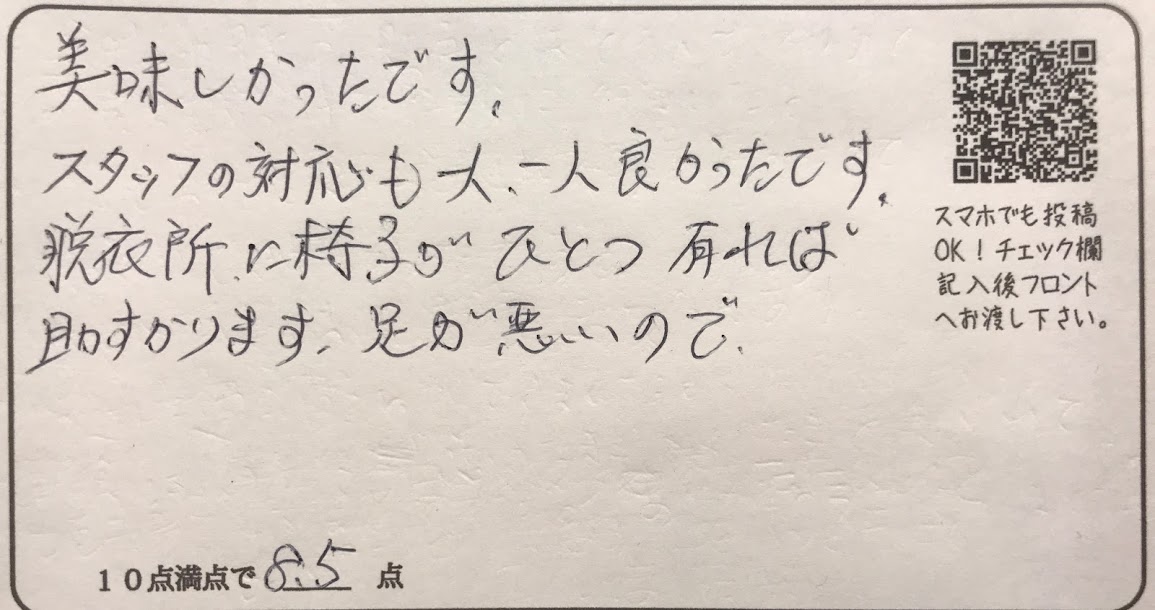 美味しかったです。
スタッフの対応も一人、一人良かったです。
脱衣所に椅子がひとつ有れば
助すかります、足が悪いので、
スマホでも投稿
OK！チェック欄
記入後フロント
へお渡し下さい。
１０点満点で 8.5 点